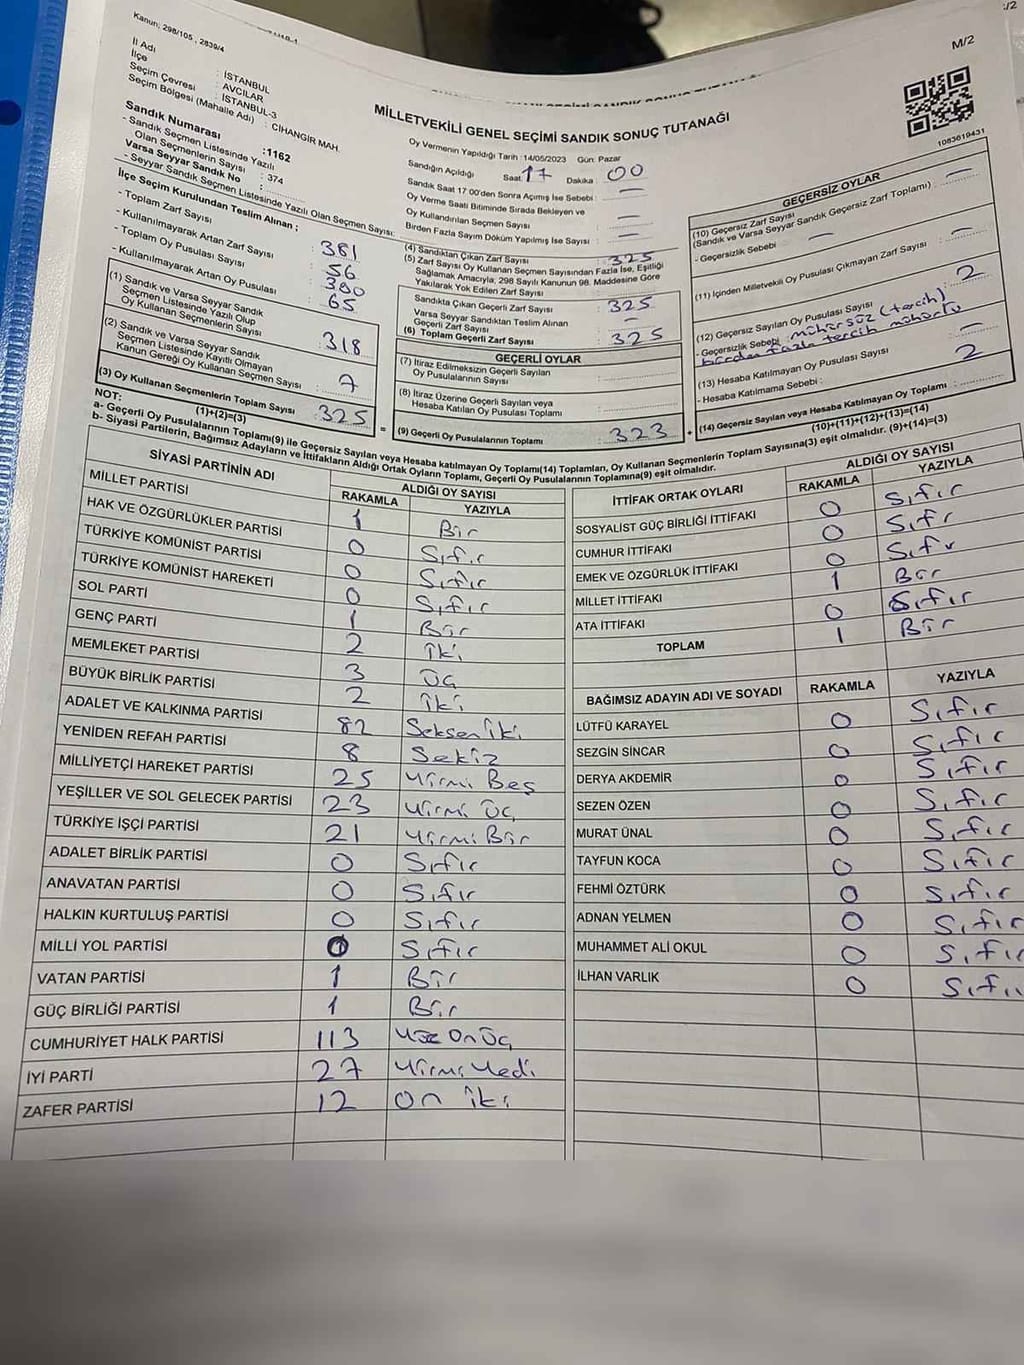 Kanun; 298/105 , 2839/4
M/2
İl Adı : İSTANBUL
İlçe : AVCILAR
Seçim Çevresi : İSTANBUL-3
Seçim Bölgesi (Mahalle Adı) : CİHANGİR MAH.
MİLLETVEKİLİ GENEL SEÇİMİ SANDIK SONUÇ TUTANAĞI
1083619431
Sandık Numarası :1162
- Sandık Seçmen Listesinde Yazılı
Olan Seçmenlerin Sayısı : 374
Varsa Seyyar Sandık No :
- Seyyar Sandık Seçmen Listesinde Yazılı Olan Seçmen Sayısı:
İlçe Seçim Kurulundan Teslim Alınan ;
- Toplam Zarf Sayısı : 381
- Kullanılmayarak Artan Zarf Sayısı : 56
- Toplam Oy Pusulası Sayısı : 380
- Kullanılmayarak Artan Oy Pusulası : 65
(1) Sandık ve Varsa Seyyar Sandık
Seçmen Listesinde Yazılı Olup
Oy Kullanan Seçmenlerin Sayısı : 318
(2) Sandık ve Varsa Seyyar Sandık
Seçmen Listesinde Kayıtlı Olmayan
Kanun Gereği Oy Kullanan Seçmen Sayısı : 7
(3) Oy Kullanan Seçmenlerin Toplam Sayısı : 325
(1)+(2)=(3)
Oy Vermenin Yapıldığı Tarih : 14/05/2023 Gün: Pazar
Sandığın Açıldığı Saat: 17 Dakika : 00
Sandık Saat 17 00'den Sonra Açımış İse Sebebi : —
Oy Verme Saati Bitiminde Sırada Bekleyen ve
Oy Kullandırılan Seçmen Sayısı : —
Birden Fazla Sayım Döküm Yapılmış İse Sayısı : —
(4) Sandıktan Çıkan Zarf Sayısı : 325
(5) Zarf Sayısı Oy Kullanan Seçmen Sayısından Fazla İse, Eşitliği
Sağlamak Amacıyla; 298 Sayılı Kanunun 98. Maddesine Göre
Yakılarak Yok Edilen Zarf Sayısı :
Sandıkta Çıkan Geçerli Zarf Sayısı : 325
Varsa Seyyar Sandıktan Teslim Alınan
Geçerli Zarf Sayısı : —
(6) Toplam Geçerli Zarf Sayısı : 325
GEÇERLİ OYLAR
(7) İtiraz Edilmeksizin Geçerli Sayılan
Oy Pusulalarının Sayısı :
(8) İtiraz Üzerine Geçerli Sayılan veya
Hesaba Katılan Oy Pusulası Toplamı :
= (9) Geçerli Oy Pusulalarının Toplamı : 323 +
GEÇERSİZ OYLAR
(10) Geçersiz Zarf Sayısı
(Sandık ve Varsa Seyyar Sandık Geçersiz Zarf Toplamı) : —
- Geçersizlik Sebebi : —
(11) İçinden Milletvekili Oy Pusulası Çıkmayan Zarf Sayısı : —
(12) Geçersiz Sayılan Oy Pusulası Sayısı : 2
- Geçersizlik Sebebi : mühürsüz (tercih)
birden fazla tercih mühürlü
(13) Hesaba Katılmayan Oy Pusulası Sayısı : —
- Hesaba Katılmama Sebebi : 2
(14) Geçersiz Sayılan veya Hesaba Katılmayan Oy Toplamı :
(10)+(11)+(12)+(13)=(14)
NOT:
a- Geçerli Oy Pusulalarının Toplamı(9) ile Geçersiz Sayılan veya Hesaba katılmayan Oy Toplamı(14) Toplamları, Oy Kullanan Seçmenlerin Toplam Sayısına(3) eşit olmalıdır. (9)+(14)=(3)
b- Siyasi Partilerin, Bağımsız Adayların ve İttifakların Aldığı Ortak Oyların Toplamı, Geçerli Oy Pusulalarının Toplamına(9) eşit olmalıdır.
SİYASİ PARTİNİN ADI ALDIĞI OY SAYISI
RAKAMLA YAZIYLA
MİLLET PARTİSİ 1 Bir
HAK VE ÖZGÜRLÜKLER PARTİSİ 0 Sıfır
TÜRKİYE KOMÜNİST PARTİSİ 0 Sıfır
TÜRKİYE KOMÜNİST HAREKETİ 0 Sıfır
SOL PARTİ 1 Bir
GENÇ PARTİ 2 iki
MEMLEKET PARTİSİ 3 Üç
BÜYÜK BİRLİK PARTİSİ 2 iki
ADALET VE KALKINMA PARTİSİ 82 Seksen iki
YENİDEN REFAH PARTİSİ 8 Sekiz
MİLLİYETÇİ HAREKET PARTİSİ 25 Yirmi Beş
YEŞİLLER VE SOL GELECEK PARTİSİ 23 Yirmi Üç
TÜRKİYE İŞÇİ PARTİSİ 21 Yirmi Bir
ADALET BİRLİK PARTİSİ 0 Sıfır
ANAVATAN PARTİSİ 0 Sıfır
HALKIN KURTULUŞ PARTİSİ 0 Sıfır
MİLLİ YOL PARTİSİ 0 Sıfır
VATAN PARTİSİ 1 Bir
GÜÇ BİRLİĞİ PARTİSİ 1 Bir
CUMHURİYET HALK PARTİSİ 113 Yüz On Üç
İYİ PARTİ 27 Yirmi Yedi
ZAFER PARTİSİ 12 On iki
İTTİFAK ORTAK OYLARI ALDIĞI OY SAYISI
RAKAMLA YAZIYLA
SOSYALİST GÜÇ BİRLİĞİ İTTİFAKI 0 Sıfır
CUMHUR İTTİFAKI 0 Sıfır
EMEK VE ÖZGÜRLÜK İTTİFAKI 0 Sıfır
MİLLET İTTİFAKI 1 Bir
ATA İTTİFAKI 0 Sıfır
TOPLAM 1 Bir
BAĞIMSIZ ADAYIN ADI VE SOYADI RAKAMLA YAZIYLA
LÜTFÜ KARAYEL 0 Sıfır
SEZGİN SİNCAR 0 Sıfır
DERYA AKDEMİR 0 Sıfır
SEZEN ÖZEN 0 Sıfır
MURAT ÜNAL 0 Sıfır
TAYFUN KOCA 0 Sıfır
FEHMİ ÖZTÜRK 0 Sıfır
ADNAN YELMEN 0 Sıfır
MUHAMMET ALİ OKUL 0 Sıfır
İLHAN VARLIK 0 Sıfır